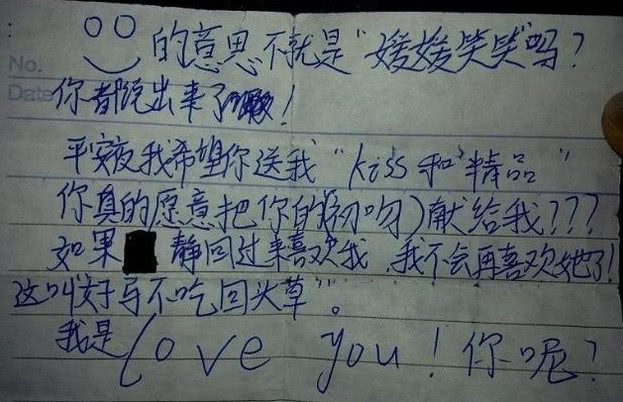 No.
的意思不就是"媛媛笑笑"吗?
Date
你都说出来了嗷!
平安夜我希望你送我"kiss和精品"
你真的愿意把你的(初吻)献给我???
如果 静回过来喜欢我,我不会再喜欢她了!
这叫"好马不吃回头草"。
我是love you!你呢?